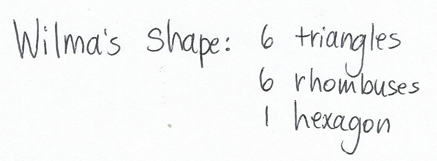 Wilma's shape: 6 triangles
6 rhombuses
1 hexagon